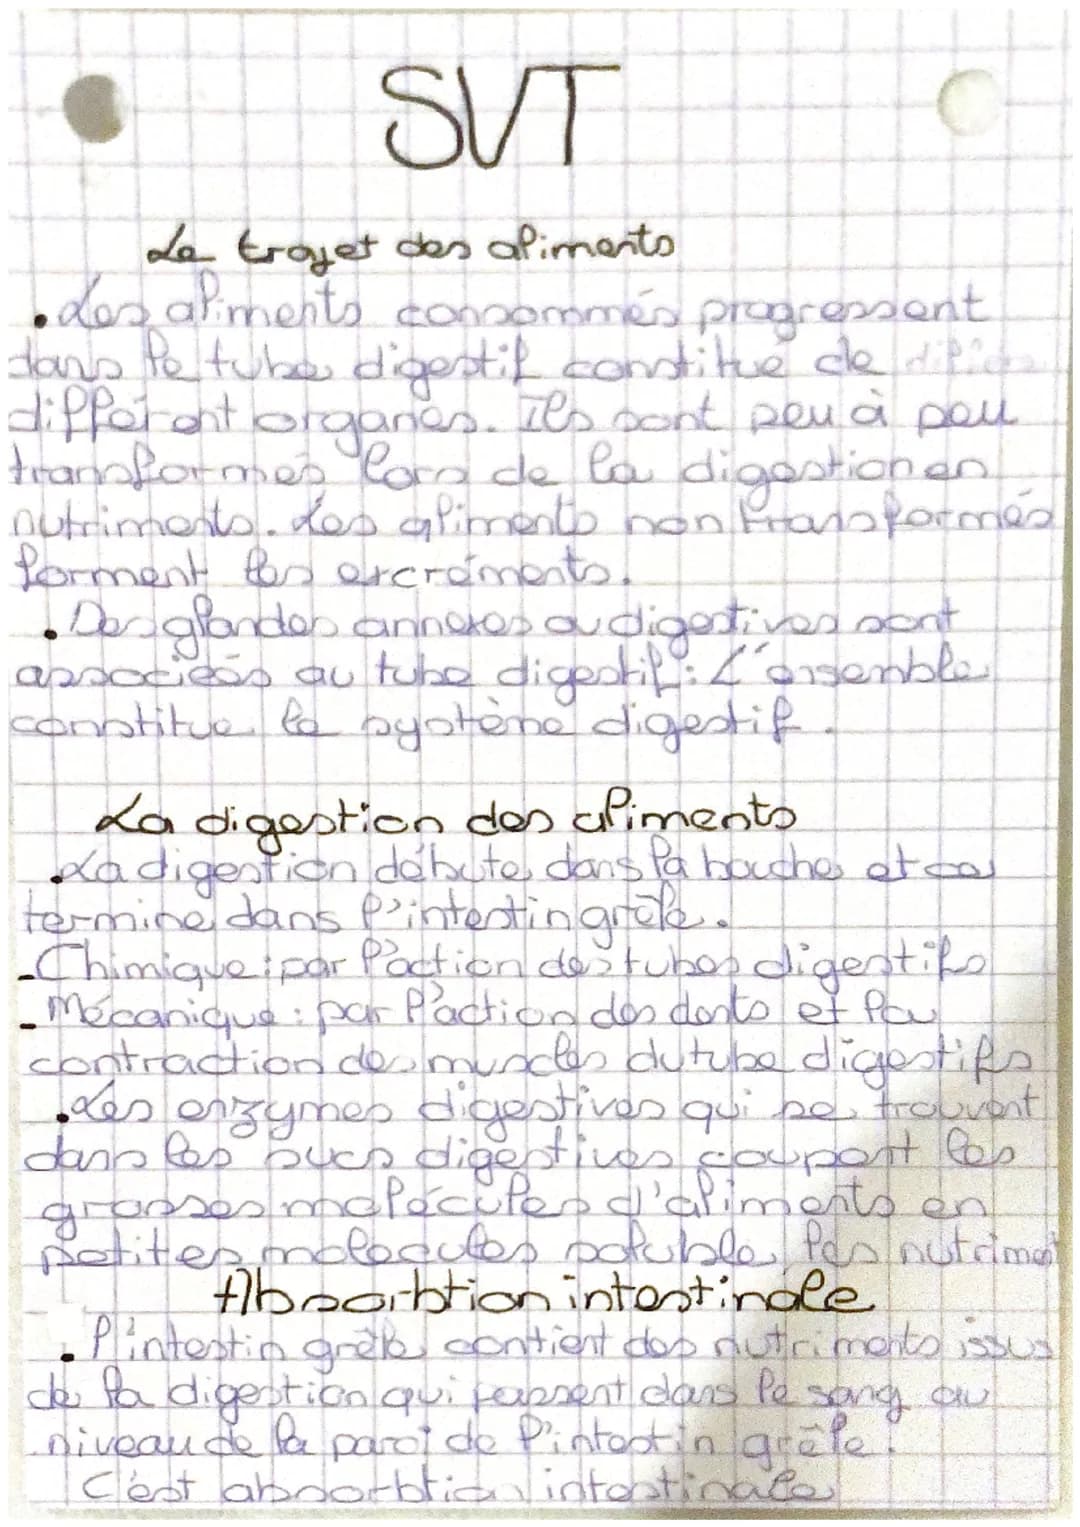 SVT
Le trajet des aliments
. Les aliments consommés progressent
dans le tube digestif constitué de
différent organes. Ils sont peu à peu
transformés lors de la digestion en
nutriments. Les aliments non transformés
forment les excréments.
. Des glandes annexes ou digestives sont
associées au tube digestif : L'ensemble
constitue le système digestif.
La digestion des aliments
. La digestion débute dans la bouche et ce
termine dans l'intestin grêle.
- Chimique : par l'action des tubes digestifs
- Mécanique : par l'action des dents et la
contraction de muscles du tube digestifs
. Les enzymes digestives qui se trouvent
dans les sucs digestives coupent les
grosses molécules d'aliments en
petites molécules soluble, les nutriment
Absorbtion intestinale
. l'intestin grêle contient des nutriments issus
de la digestion qui passent dans le sang au
niveau de la paroi de l'intestin grêle.
C'est absorbtion intestinale